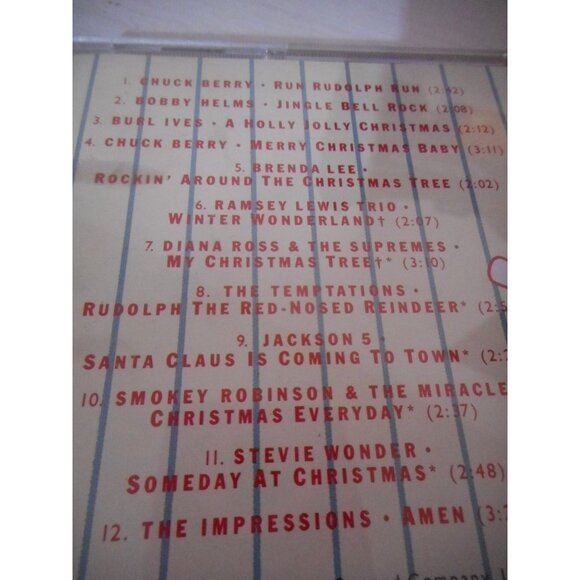 1. CHUCK BERRY · RUN RUDOLPH RUN (2:42)
2. BOBBY HELMS · JINGLE BELL ROCK (2:08)
3. BURL IVES · A HOLLY JOLLY CHRISTMAS (2:12)
4. CHUCK BERRY · MERRY CHRISTMAS BABY (3:11)
5. BRENDA LEE ·
ROCKIN' AROUND THE CHRISTMAS TREE (2:02)
6. RAMSEY LEWIS TRIO ·
WINTER WONDERLAND† (2:07)
7. DIANA ROSS & THE SUPREMES ·
MY CHRISTMAS TREE†* (3:10)
8. THE TEMPTATIONS ·
RUDOLPH THE RED-NOSED REINDEER* (2:
9. JACKSON 5 ·
SANTA CLAUS IS COMING TO TOWN* (2:
10. SMOKEY ROBINSON & THE MIRACLE
CHRISTMAS EVERYDAY* (2:37)
11. STEVIE WONDER ·
SOMEDAY AT CHRISTMAS* (2:48)
12. THE IMPRESSIONS · AMEN (3: